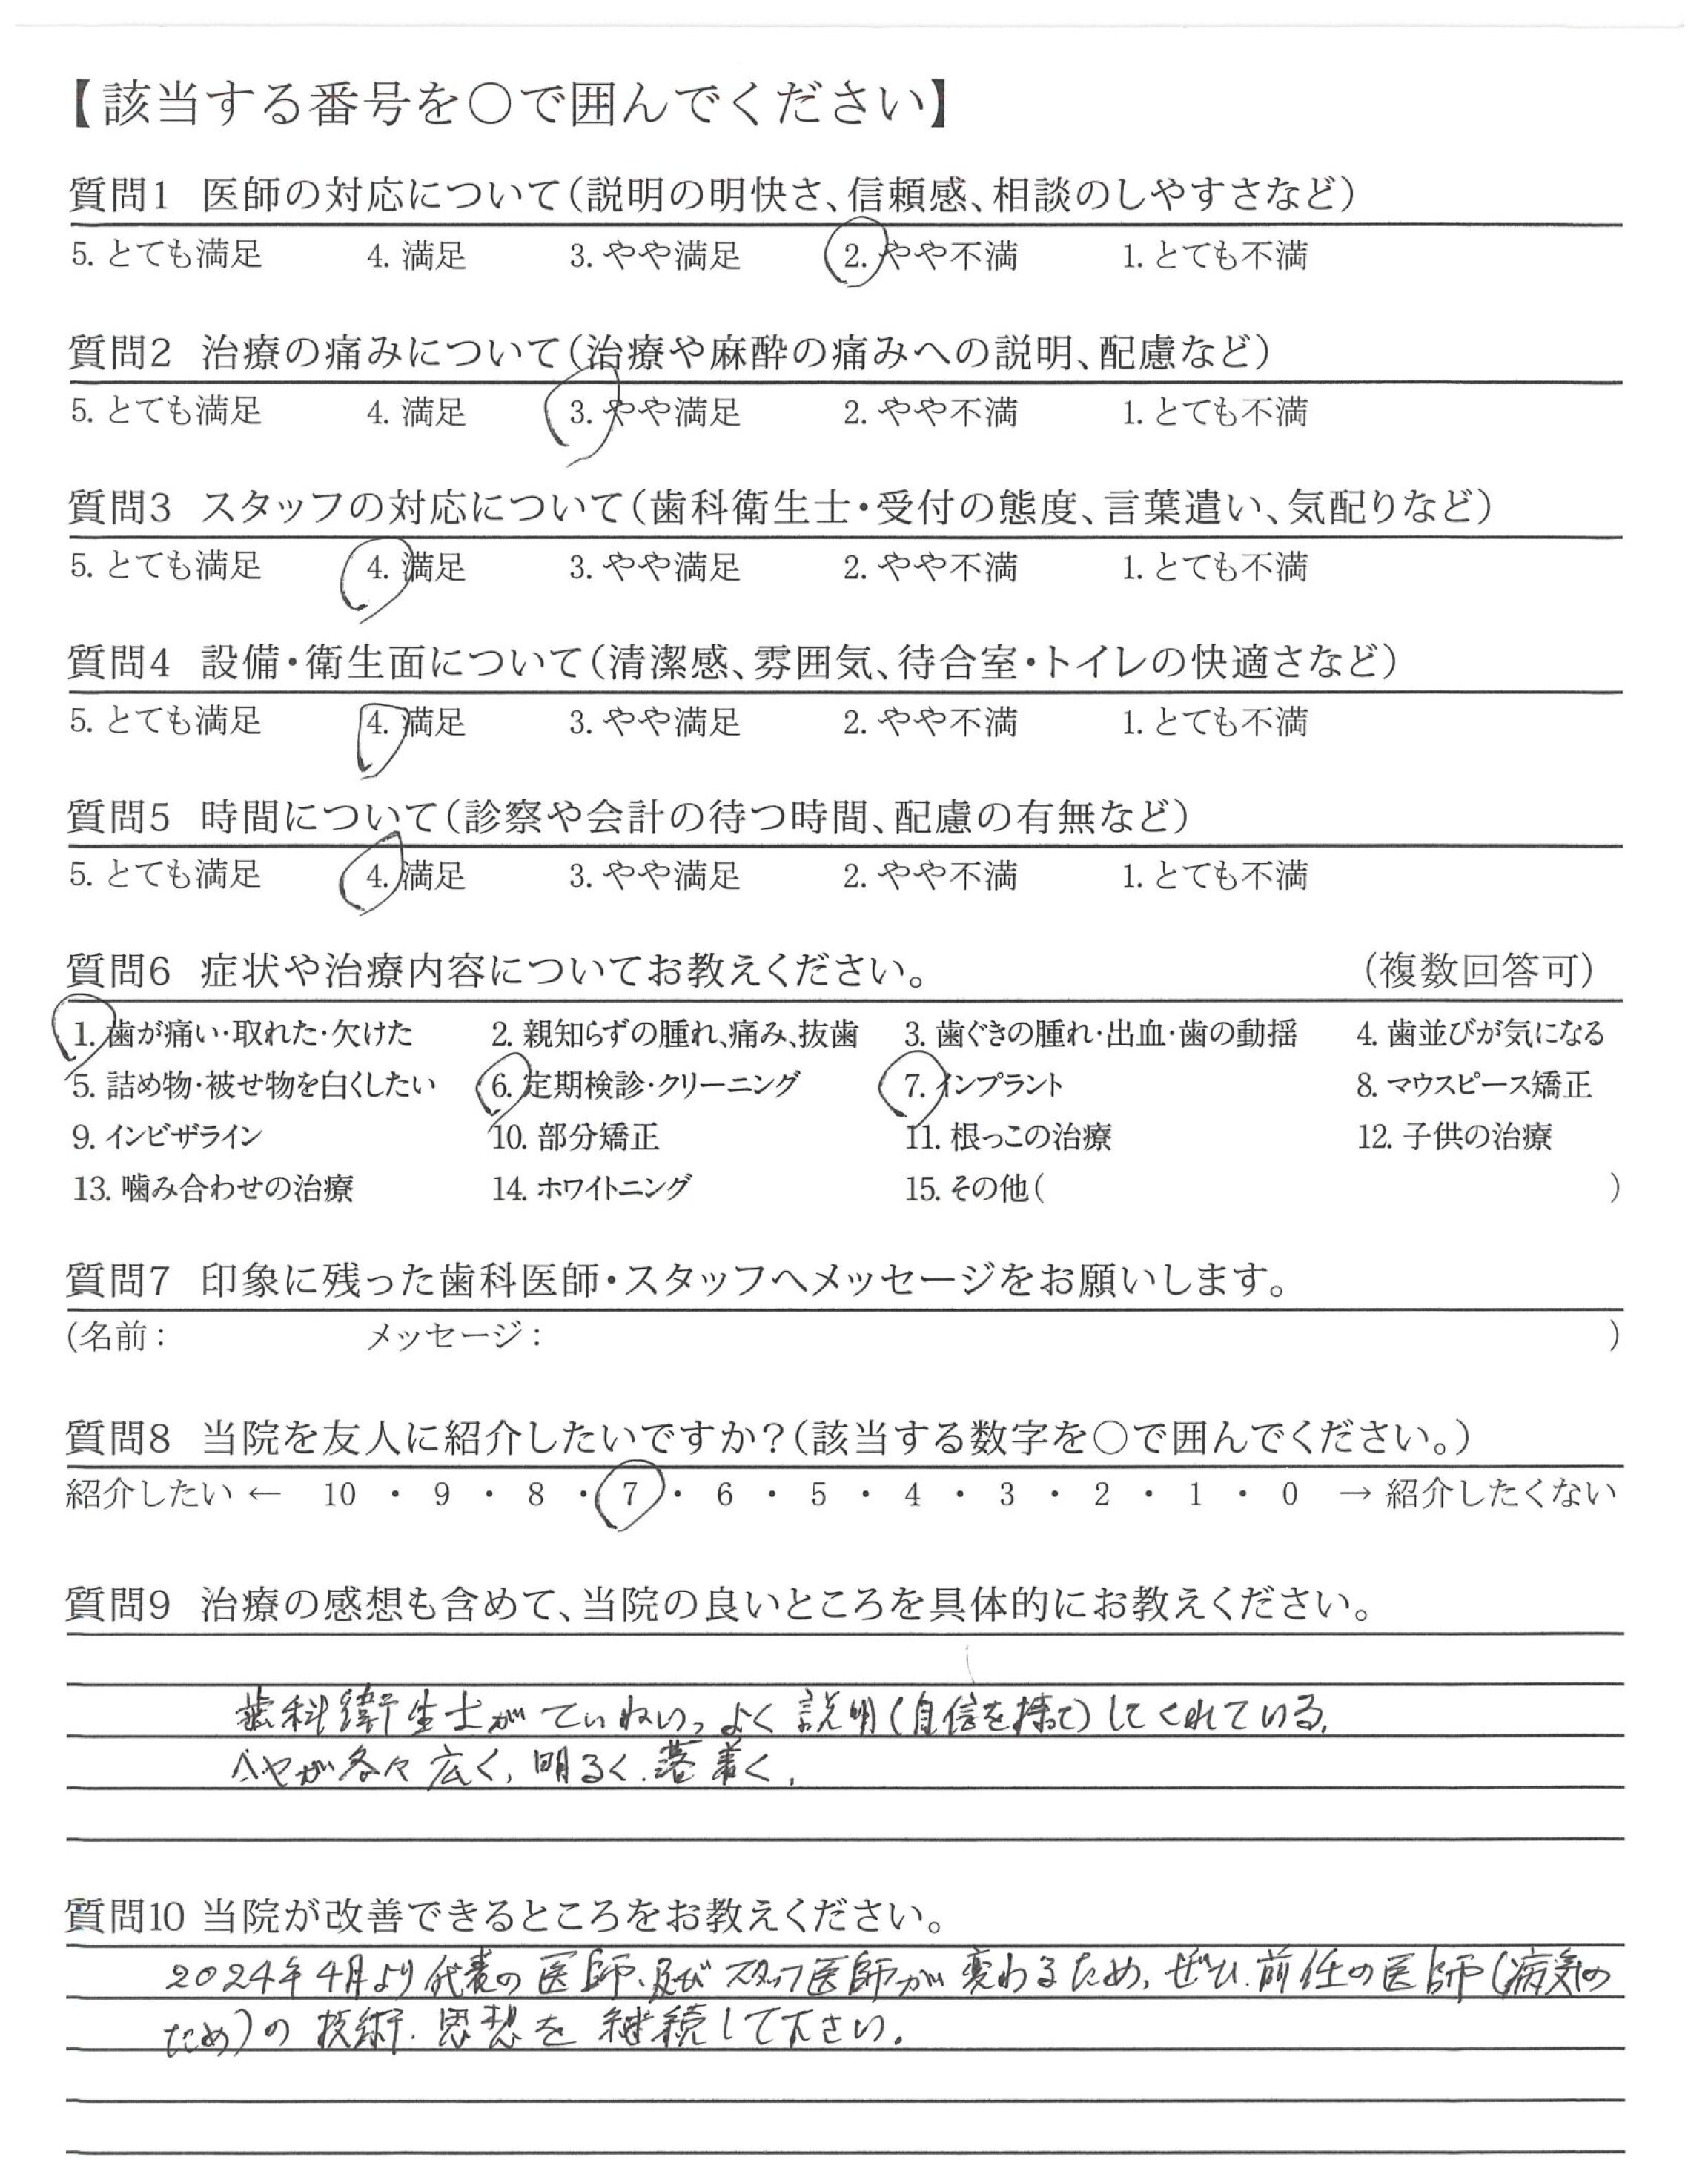 【該当する番号を○で囲んでください】
質問1 医師の対応について(説明の明快さ、信頼感、相談のしやすさなど)
5. とても満足 4. 満足 3. やや満足 2. やや不満 1. とても不満
質問2 治療の痛みについて(治療や麻酔の痛みへの説明、配慮など)
5. とても満足 4. 満足 3. やや満足 2. やや不満 1. とても不満
質問3 スタッフの対応について(歯科衛生士・受付の態度、言葉遣い、気配りなど)
5. とても満足 4. 満足 3. やや満足 2. やや不満 1. とても不満
質問4 設備・衛生面について(清潔感、雰囲気、待合室・トイレの快適さなど)
5. とても満足 4. 満足 3. やや満足 2. やや不満 1. とても不満
質問5 時間について(診察や会計の待つ時間、配慮の有無など)
5. とても満足 4. 満足 3. やや満足 2. やや不満 1. とても不満
質問6 症状や治療内容についてお教えください。 (複数回答可)
1. 歯が痛い・取れた・欠けた 2. 親知らずの腫れ、痛み、抜歯 3. 歯ぐきの腫れ・出血・歯の動揺 4. 歯並びが気になる
5. 詰め物・被せ物を白くしたい 6. 定期検診・クリーニング 7. インプラント 8. マウスピース矯正
9. インビザライン 10. 部分矯正 11. 根っこの治療 12. 子供の治療
13. 噛み合わせの治療 14. ホワイトニング 15. その他( )
質問7 印象に残った歯科医師・スタッフへメッセージをお願いします。
(名前: メッセージ: )
質問8 当院を友人に紹介したいですか?(該当する数字を○で囲んでください。)
紹介したい ← 10 ・ 9 ・ 8 ・ 7 ・ 6 ・ 5 ・ 4 ・ 3 ・ 2 ・ 1 ・ 0 → 紹介したくない
質問9 治療の感想も含めて、当院の良いところを具体的にお教えください。
歯科衛生士がていねいっよく説明(自信を持って)してくれている。
ヘヤが各々広く、明るく、落着く。
質問10 当院が改善できるところをお教えください。
2024年4月より代表の医師、及びスタッフ医師が変わるため、ぜひ、前任の医師(病気の
ため)の技術、思想を継続して下さい。